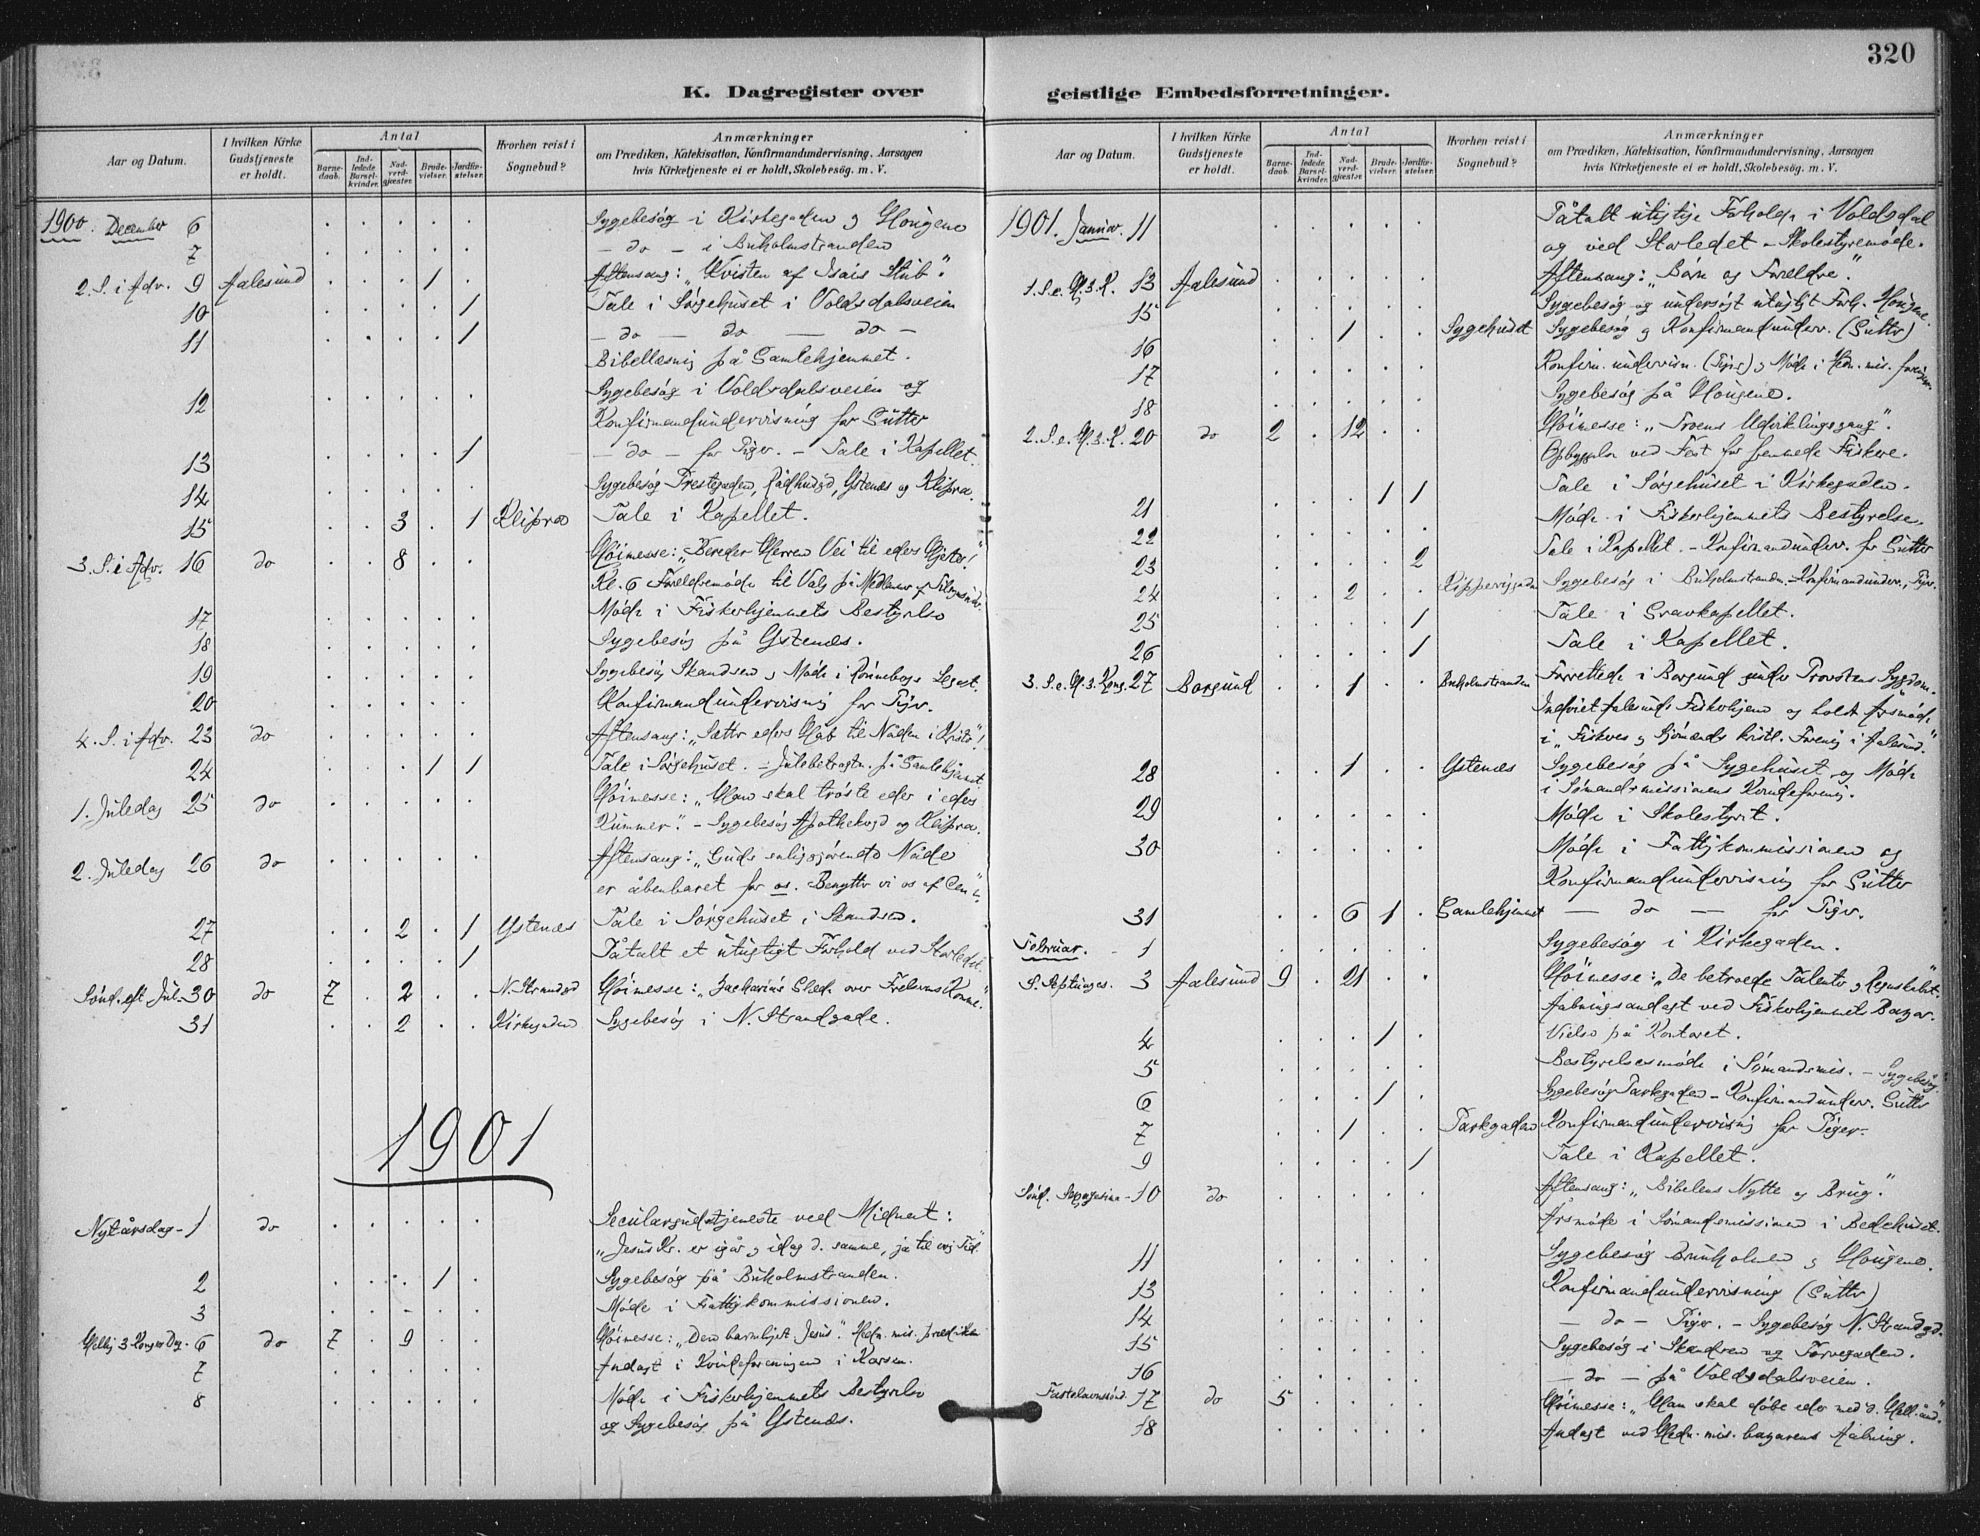 320
K. Dagregister over geistlige Embedsforretninger.
Aar og Datum. | I hvilken Kirke Gudstjeneste er holdt. | Antal | Barnedaab. | Indledede Barselkvinder. | Nadverdgjæster. | Brudevielser. | Jordfæstelser. | Hvorhen reist i Sognebud? | Anmærkninger om Prædiken, Katekisation, Konfirmandundervisning, Aarsagen hvis Kirketjeneste ei er holdt, Skolebesøg. m. V.
1900. December 6 Sygebesøg i Kirkegaden og Hougene
7 — do — i Buholmstranden
2. S. i Adv. 9 Aalesund 1 Aftensang: „Kvisten af Isais Stub".
10 1 Tale i Sørgehuset i Voldsdalsveien
11 1 — do — do — do —
Bibellæsnig på Gamlehjemmet.
12 Sygebesøg i Voldsdalsveien og
Konfirmandundervisning for Gutter
13 1 — do — for Piger. – Tale i Kapellet.
14 Sygebesøg Prestegaden, Rådhusgd, Ystenæs og Klipra.
15 3 1 Klipra Tale i Kapellet.
3. S. i Adv. 16 do 8 Høimesse: „Bereder Herren Vei til eders Hjerter!"
Kl. 6 Foreldremøde til Valg på Medlemmer af Tilsynsudv.
17 Møde i Fiskerhjemmets Bestyrelse
18 Sygebesøg på Ystenæs.
19 Sygebesøg Skandsen og Møde i Rønnebergs Legat.
20 Konfirmandundervisnig for Piger.
4. S. i Adv. 23 do Aftensang: „Sætter eders Håb til Nåden i Kristo"!
24 1 1 Tale i Sørgehuset. – Julebetragtn. på Gamlehjemmet.
1. Juledag 25 do Høimesse: „Han skal trøste eder i eders
Kummer". – Sygebesøg Apothekergd og Klipra.
2. Juledag 26 do Aftensang: „Guds saliggjørende Nåde
er åbenbaret for os. Benytter vi os af Den"?
27 2 1 Ystenæs Tale i Sørgehuset i Skandsen.
28 1 Påtalt et utugtigt Forhold ved Storledet.
Sønd. eft Jul. 30 do 7 2 N. Strandgd Høimesse: „Zacharias Glæde over Frelserens Komme".
31 2 Kirkegaden Sygebesøg i N. Strandgade.
1901
Nytårsdag – 1 do Seculargudstjeneste ved Midnat:
„Jesus Kr. er igår og idag d. samme, ja til evig Tid".
2 1 Sygebesøg på Buholmstranden.
3 Møde i Fattigkommissionen.
Hellig 3 Konger Dg. 6 do 7 9 Høimesse: „Den barnlige Jesus". Hedn. mis. prædiken
7 Andagt i Kvindeforeningen i Korsen.
8 Møde i Fiskerhjemmets Bestyrelse
og Sygebesøg på Ystenæs.
Aar og Datum. | I hvilken Kirke Gudstjeneste er holdt. | Antal | Barnedaab. | Indledede Barselkvinder. | Nadverdgjæster. | Brudevielser. | Jordfæstelser. | Hvorhen reist i Sognebud? | Anmærkninger om Prædiken, Katekisation, Konfirmandundervisning, Aarsagen hvis Kirketjeneste ei er holdt, Skolebesøg. m. V.
1901. Januar. 11 Påtalt utugtige Forholde i Voldsdal
og ved Storledet – Skolestyremøde.
1. S. e. H. 3. K. 13 Aalesund Aftensang: „Børn og Foreldre".
15 Sygebesøg og undersøgt utugtigt Forh. Hougene.
16 1 Sygehuset Sygebesøg og Konfirmandunderv. (Gutter)
17 Konfirm. undervisn. (Piger) og Møde i Hedn. mis. foreningen.
18 Sygebesøg på Hougene.
2. S. e. H. 3. K. 20 do 2 12 Høimesse: „Troens Udviklingsgang".
ved Fest for fremmede Fiskere.
21 1 1 Tale i Sørgehuset i Kirkegaden.
22 Møde i Fiskerhjemmets Bestyrelse.
23 2 Tale i Kapellet. – Konfirmandunderv. for Gutter
24 2 Kipperviggaden Sygebesøg i Buholmstranden – Konfirmandunderv., Piger.
25 1 Tale i Gravkapellet.
26 1 Tale i Kapellet.
3. S. e. H. 3. Kong. 27 Borgund 1 Buholmstranden Forrettede i Borgund under Provstens Sygdom.
Indviet Aalesunds Fiskerhjem og holdt Årsmøde
i „Fiskeres og Sjømænds kristl. Forenig i Aalesund."
28 1 Ystenæs Sygebesøg på Sygehuset og Møde
i Sømandsmissionens Kvindeforenig.
29 Møde i Skolestyret.
30 Møde i Fattigkommissionen og
Konfirmandundervisnig for Gutter
31 6 1 Gamlehjemmet — do — for Piger.
Februar. – 1 Sygebesøg i Kirkegaden.
S. Septuages. 3 Aalesund 9 21 Høimesse: „De betroede Talenter og Regnskabet".
Aabningsandagt ved Fiskerhjemmets Bazar.
4 1 Vielse på Kontoret.
5 Bestyrelsesmøde i Sømandsmis. – Sygebesøg
6 1 Sygebesøg Parkgaden – Konfirmandunderv. Gutter
7 1 Parkgaden Konfirmandundervisnig for Piger.
9 1 Tale i Kapellet.
Sønd. Sexagesima – 10 do Aftensang: „Bibelens Nytte og Brug".
Årsmøde i Sømandsmissionen i Bedehuset.
11 Sygebesøg Brunholmen og Hougene.
13 Konfirmandundervisning (Gutter)
14 — do — Piger. – Sygebesøg N. Strandgd.
15 Sygebesøg i Skandsen og Farvegaden.
16 — do — på Voldsdalsveien.
Fastelavnssønd. 17 do 5 Høimesse: „Han skal døbe eder med d. Hell. ånd"
18 Andagt ved Hedn. mis. bazarens Aabning.